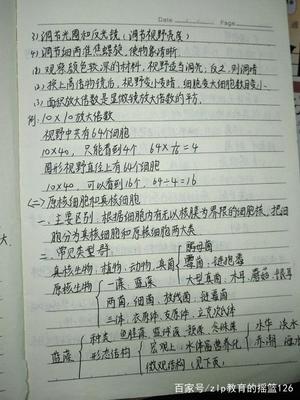 Date        Page
3) 调节光圈和反光镜（调节视野亮度）
4) 调节细为准焦螺旋，使物象清晰.
(1) 观察颜色较深的材料，视野适当调亮；反之，则调暗
(2) 换上高倍物镜后，视野变小变暗，细胞变大细胞数目变小.
(3) 面积放大倍数是显微镜放大倍数的平方.
例: 10×10 放大倍数
视野中共有64个细胞
10×40，只能看到4个 64×1/16=4
圆形视野直径上有64个细胞
10×40，可以看到16个，64÷4=16
(二) 原核细胞和真核细胞
一、主要区别，根据细胞内有无以核膜为界限的细胞核，把细
胞分为真核细胞和原核细胞两大类
二、常见类型举
酵母菌
真核生物：植物，动物，真菌 霉菌，链孢霉
大型真菌，木耳，蘑菇，银耳
原核生物 一藻，蓝藻
两菌，细菌，放线菌，链霉菌
三体，衣原体，支原体，立克次氏体
蓝藻 种类
形态结构 宏观上，水体富营养化 水华，淡水
赤潮，海水
微观结构（见下页）
百家号/zlp教育的摇篮126